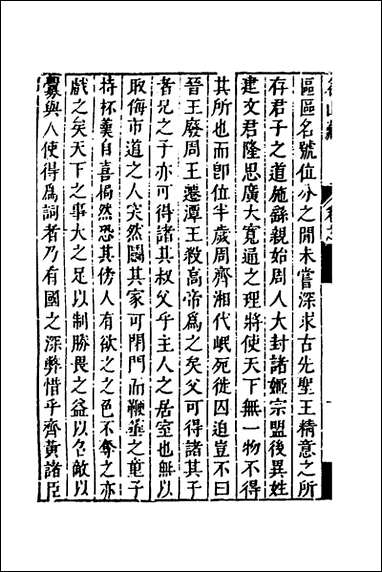 區區名號位分之閒未嘗深求古先聖王精意之所
存君子之道施繇親始周人大封諸姬宗盟後異姓
建文君隆思廣大寬通之理將使天下無一物不得
其所也而卽位半歲周齊湘代岷宛徙囚追豈不曰
晉王廢周王戀潭王殺高帝爲之矣父可得諸其子
者兄之子亦可得諸其叔父乎主人之居室也無以
取侮市道之人突然鬭其家可閉門而鞭箠之童子
持杯羹自喜惴然恐其傍人有欲之之色不奪之亦
戲之矣天下之事大之足以制勝畏之益以召敵以
釁與人使得爲詞者乃有國之深弊惜乎齊黃諸臣